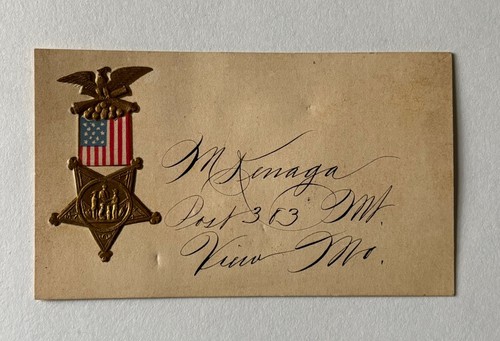 M Kenaga
Post 303 Mt.
View Mo.